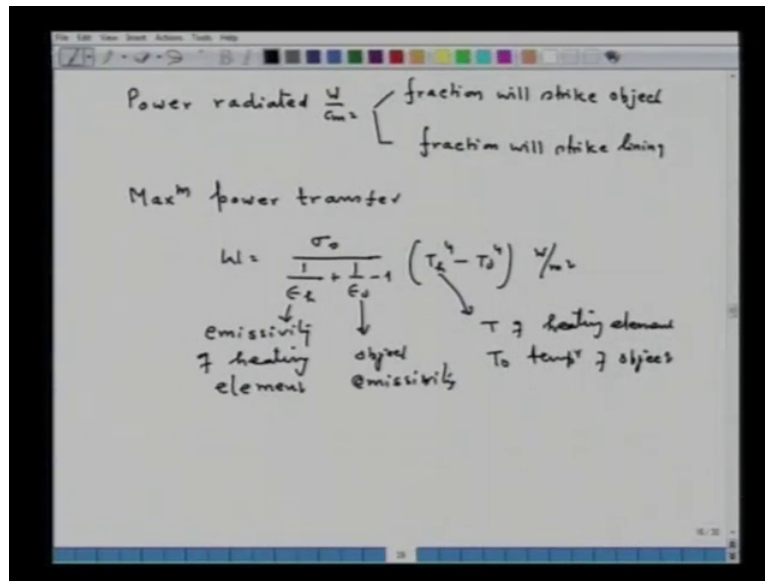 File Edit View Insert Actions Tools Help
Power radiated W/cm² fraction will strike object
fraction will strike lining
Maxᵐ power transfer
W = σ₀ / (1/ϵₕ + 1/ϵ₀ - 1) (Tₕ⁴ - T₀⁴) W/m²
emissivity of heating element
object emissivity
T of heating element
T₀ tempʳ of object